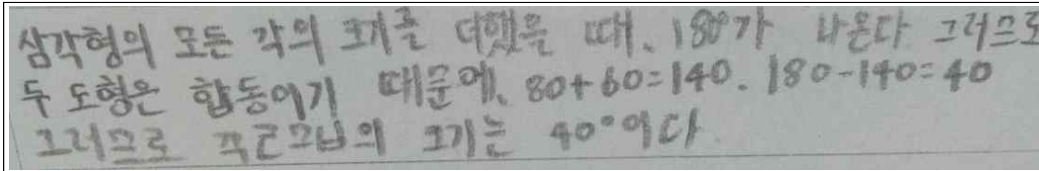 삼각형의 모든 각의 크기를 더했을 때, 180°가 나온다 그러므로
두 도형은 합동이기 때문에, 80+60=140. 180-140=40
그러므로 각ㄹㄱㅂ의 크기는 40°이다.